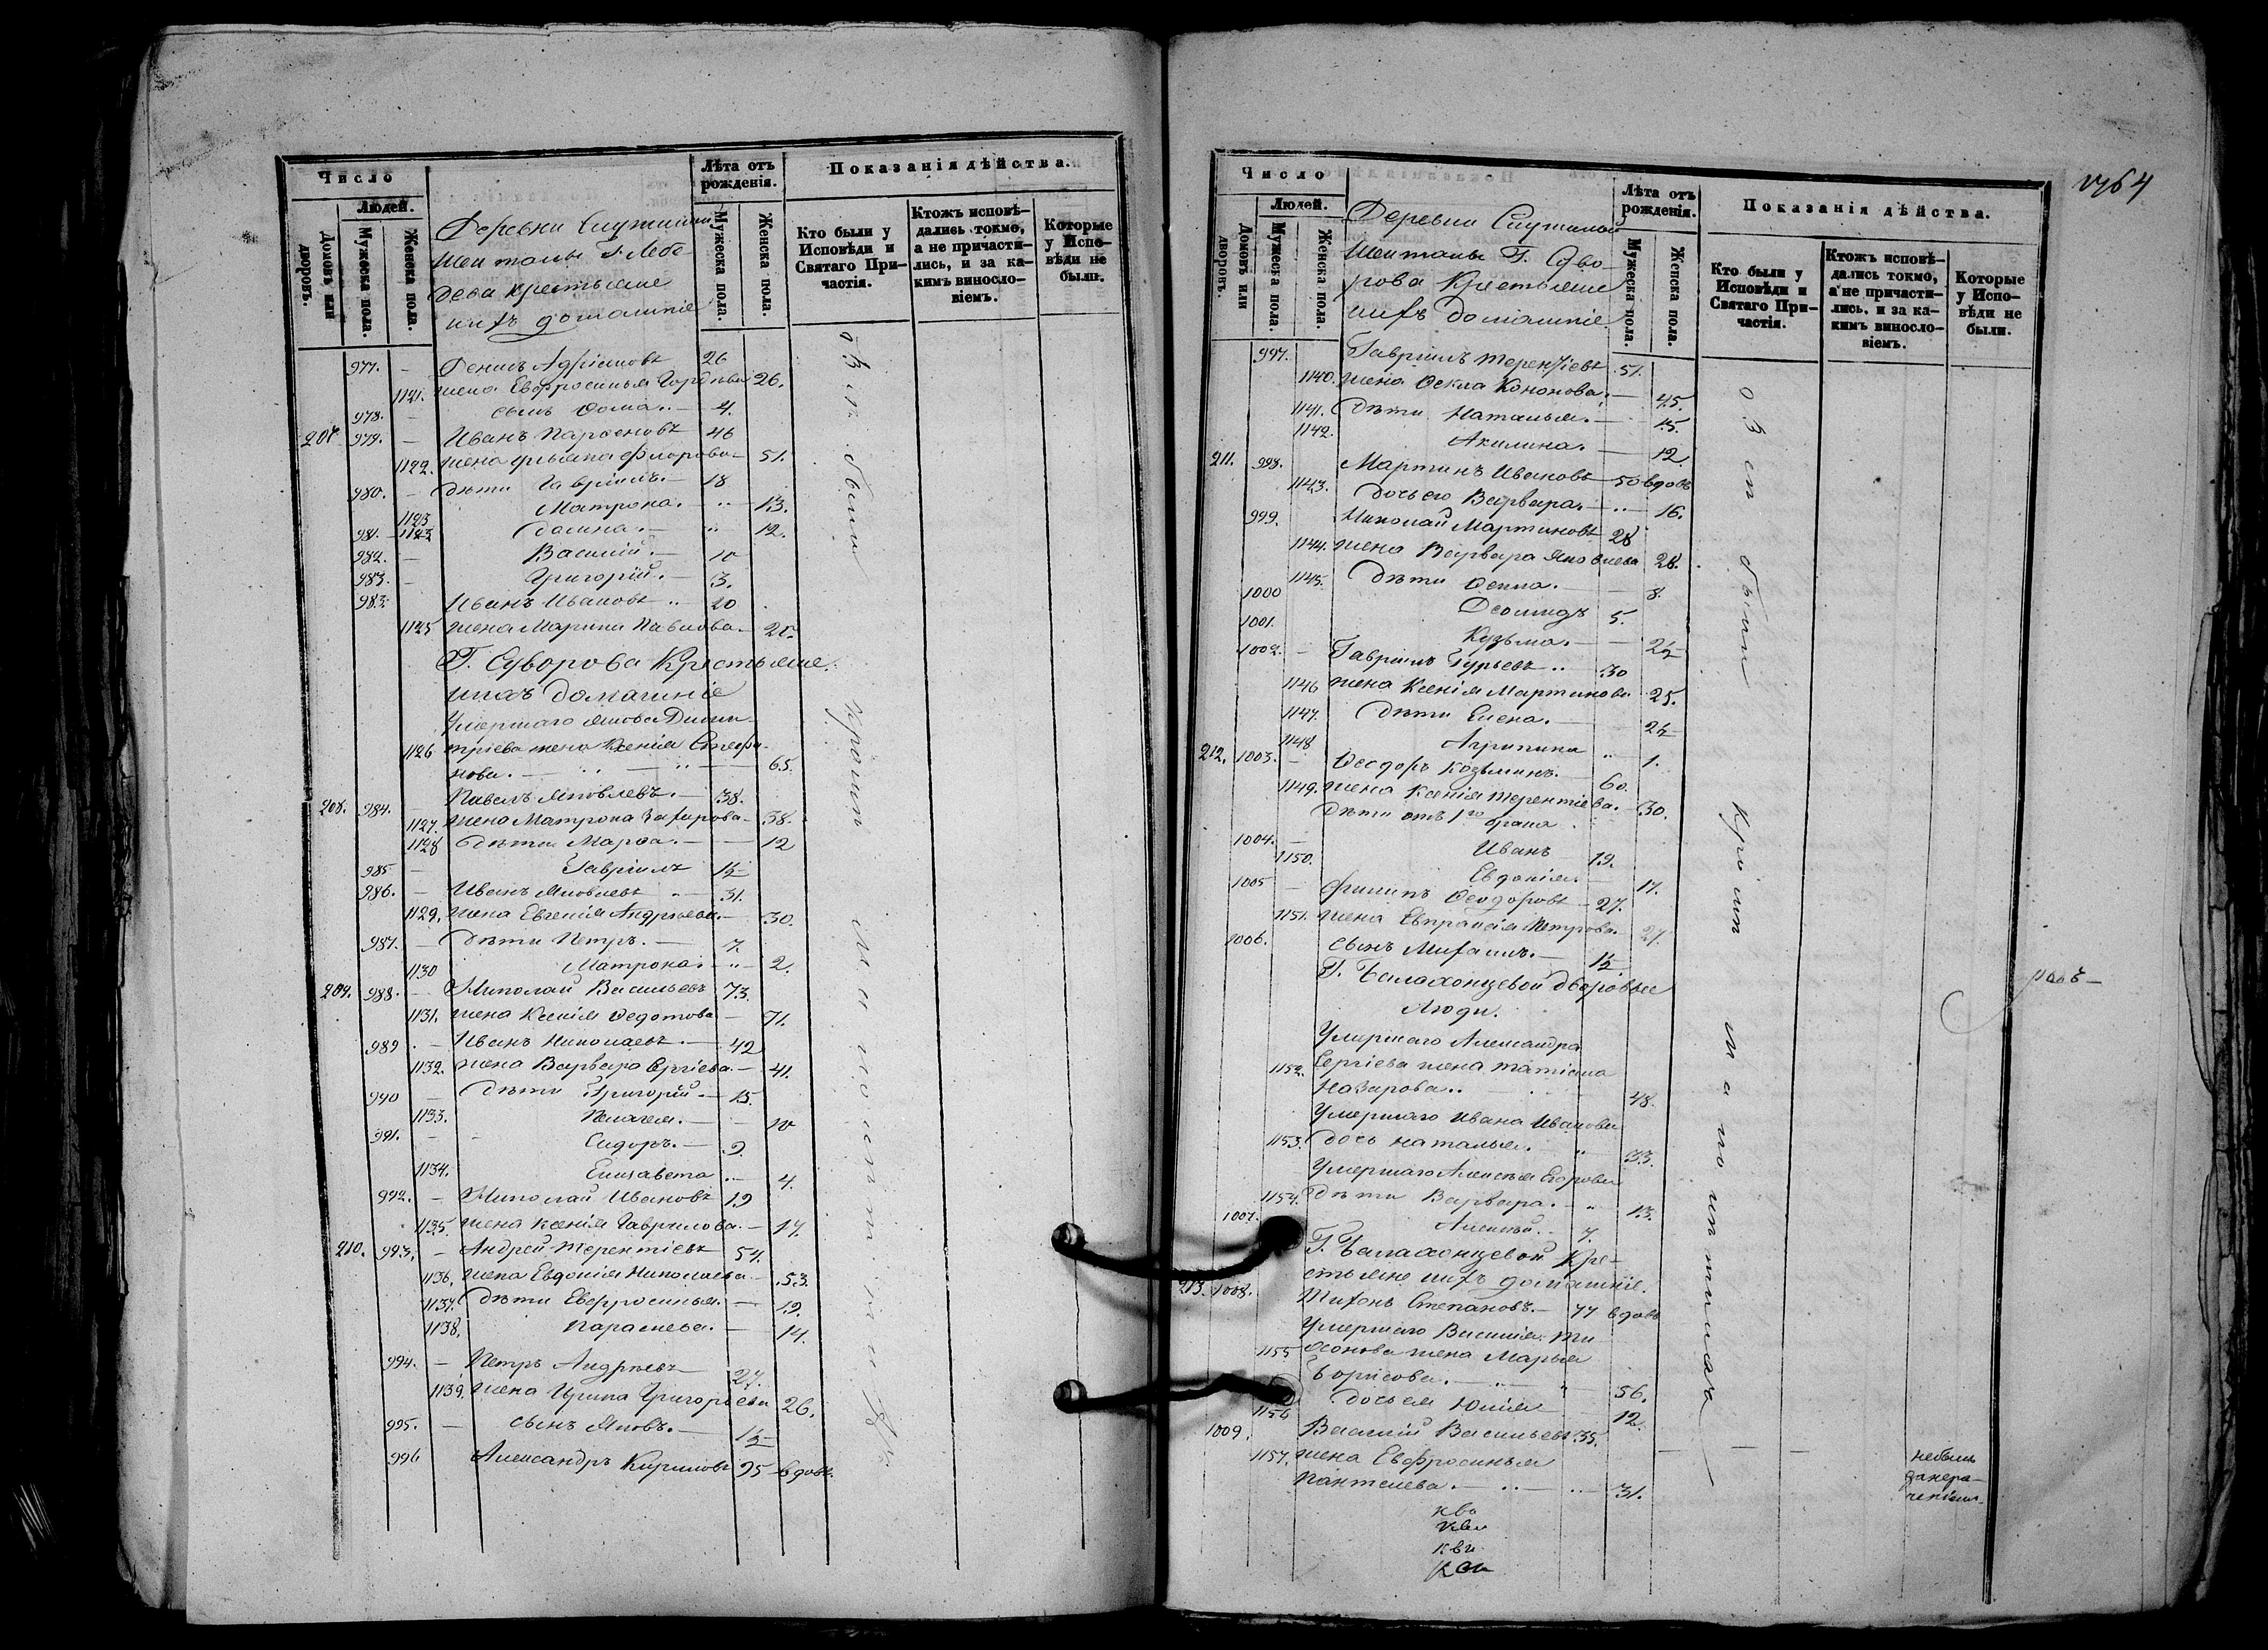 Число
Людей.
Домовъ или дворовъ.
Мужеска пола.
Женска пола.
Деревни
Шенталы Г. Лебе-
дева крестьяне
ихъ домашніе
Лѣта отъ рожденія.
Мужеска пола.
Женска пола.
Показанія дѣйства.
Кто были у Исповѣди и Святаго При-частія.
Ктожъ исповѣ-дались токмо, а не причасти-лись, и за ка-кимъ винosло-віемъ.
Которые у Испо-вѣди не были.
977. – Денисъ Адріановъ 26
1121. жена Евфросинья 26.
978. – сынъ Ѳома. – 4.
207 979. – Иванъ Парѳеновъ 46
1122. жена Ульяна Флорова – 51.
980. – дѣти Гавріилъ. – 18
1123 Матрона. – 13.
981. – 1123 12.
982. – Василій. – 10
983. – Григорій. – 3.
983. Иванъ Ивановъ 20
1125 жена Марина Павлова – 21.
Г. Суворова Крестьяне
ихъ домашніе
Умершаго Якова Дими-
1126 тріева жена Ксенія Стефа-
нова. – 65.
208. 984. – Павелъ Яковлевъ. – 38.
1127. жена Матрона Захарова – 38.
1128 дѣти Марѳа. – 12
985 – Гавріилъ ½
986. – Иванъ Яковлевъ 31.
1129. жена Евгенія Андреева. – 30.
987. – дѣти Петръ. – 7.
1130 Матрона. – 2.
209. 988. – Николай Васильевъ 73.
1131. жена Ксенія Ѳедотова – 71.
989. – Иванъ Николаевъ. – 42
1132. жена Варвара Сергіева. – 41.
990 – дѣти Григорій – 15.
1133. Пелагея. – 10
991. – Сидоръ. – 9.
1134. Елизавета 4.
992. – Николай Ивановъ 19
1135. жена Ксенія Гаврилова. – 17.
210. 993. – Андрей Терентіевъ 54.
1136. жена Евдокія Николаева – 53.
1137. дѣти Евфросинья. – 19.
1138. Параскева. – 14.
994. – Петръ Андреевъ 27.
1139. жена Ирина Григорьева 26.
995. – сынъ Яковъ. – ½
996 Александръ Кириловъ 95 – вдовъ.
Число
Людей.
Домовъ или дворовъ.
Мужеска пола.
Женска пола.
Деревни
Шенталы Г. Суво-
рова Крестьяне
ихъ домашніе
Лѣта отъ рожденія.
Мужеска пола.
Женска пола.
Показанія дѣйства.
Кто были у Исповѣди и Святаго При-частія.
Ктожъ исповѣ-дались токмо, а не причасти-лись, и за ка-кимъ винosло-віемъ.
Которые у Испо-вѣди не были.
997. Гавріилъ Терентіевъ 51.
1140. жена Ѳекла Кононова. – 45.
1141. дѣти Наталья. – 15.
1142. Акилина. – 12.
211. 998. Мартинъ Ивановъ 50 вдовъ
1143. дочь его Варвара. – 16.
999. Николай Мартиновъ 28
1144. жена Варвара Яковлева 28.
1145. дѣти Ѳекла. – 8.
1000 Деомидъ 5.
1001. Кузьма. – 2½
1002. – Гавріилъ Гурьевъ 30
1146 жена Ксенія Мартинова 25.
1147. дѣти Елена. – 2½
1148 Агрипина 1.
212. 1003. – Ѳеодоръ Козьминъ. – 60.
1149. жена Ксенія Терентіева. – 30.
дѣти отъ 1го брака
1004. – Иванъ 19.
1150. Евдокія. – 17.
1005 – Филипъ Ѳеодоровъ – 27.
1151. жена Евпраксія Петрова. 27.
1006. сынъ Михаилъ. – ½
Г. Балахонцевой дворовые
люди.
Умершаго Александра
1152. Сергіева жена Татіана
Назарова. 48.
Умершаго Ивана Иванова
1153. дочь Наталья. – 33.
Умершаго Алексѣя Егорова
1154. дѣти Варвара. – 13.
1007. Алексѣй. 7.
Г. Балахонцевой Кре-
стьяне ихъ домашніе.
213. 1008. Тихонъ Степановъ. – 77 вдовъ
Умершаго Василія Ти-
1155 хонова жена Марья
Борисова. – 56.
1156 дочь ея Юлія 12.
1009. Василій Васильевъ 35.
1157. жена Евфросинья
Пантелева. – 31.
небылъ